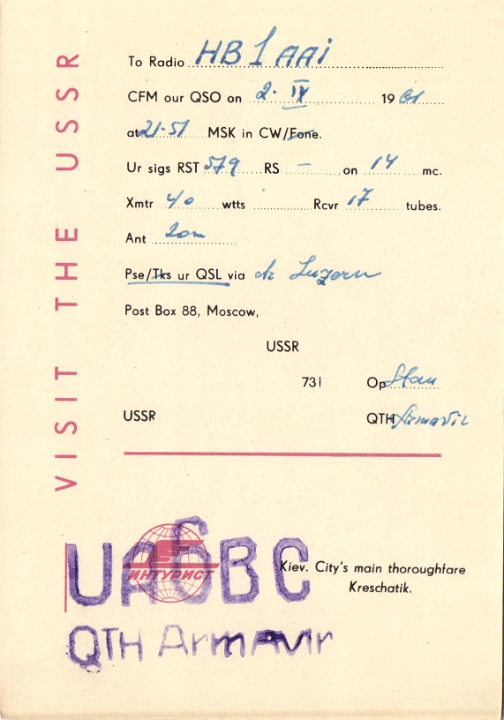 VISIT THE USSR
To Radio HB1AAi
CFM our QSO on 2. IX 1961
at 21-51 MSK in CW/Fone.
Ur sigs RST 579 RS – on 14 mc.
Xmtr 40 wtts Rcvr 17 tubes.
Ant 20m
Pse/Tks ur QSL via Luzern
Post Box 88, Moscow,
USSR
73! Op Stan
USSR QTH Armavir
ИНТУРИСТ
UA6BC
Kiev. City's main thoroughfare
Kreschatik.
QTH Armavir